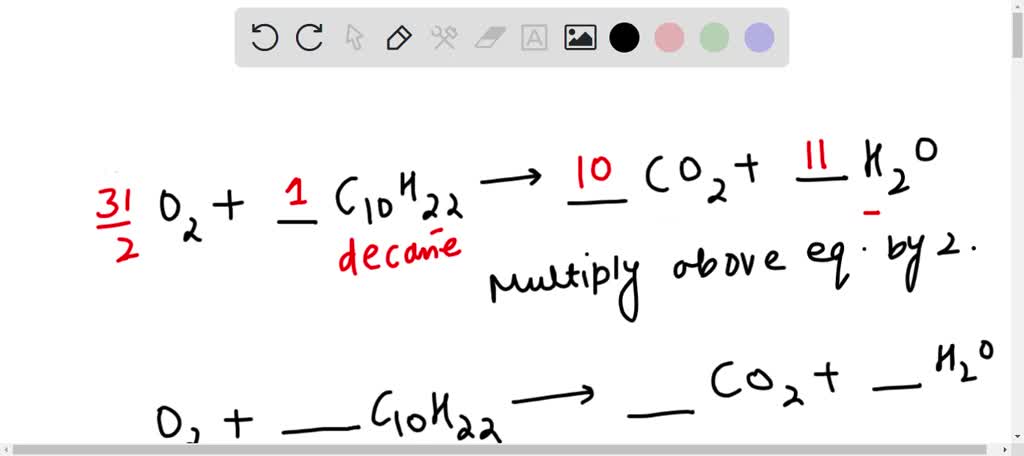 31/2 O₂ + 1 C₁₀H₂₂ → 10 CO₂ + 11 H₂O
decane
Multiply above eq. by 2.
O₂ + __ C₁₀H₂₂ → __ CO₂ + __ H₂O